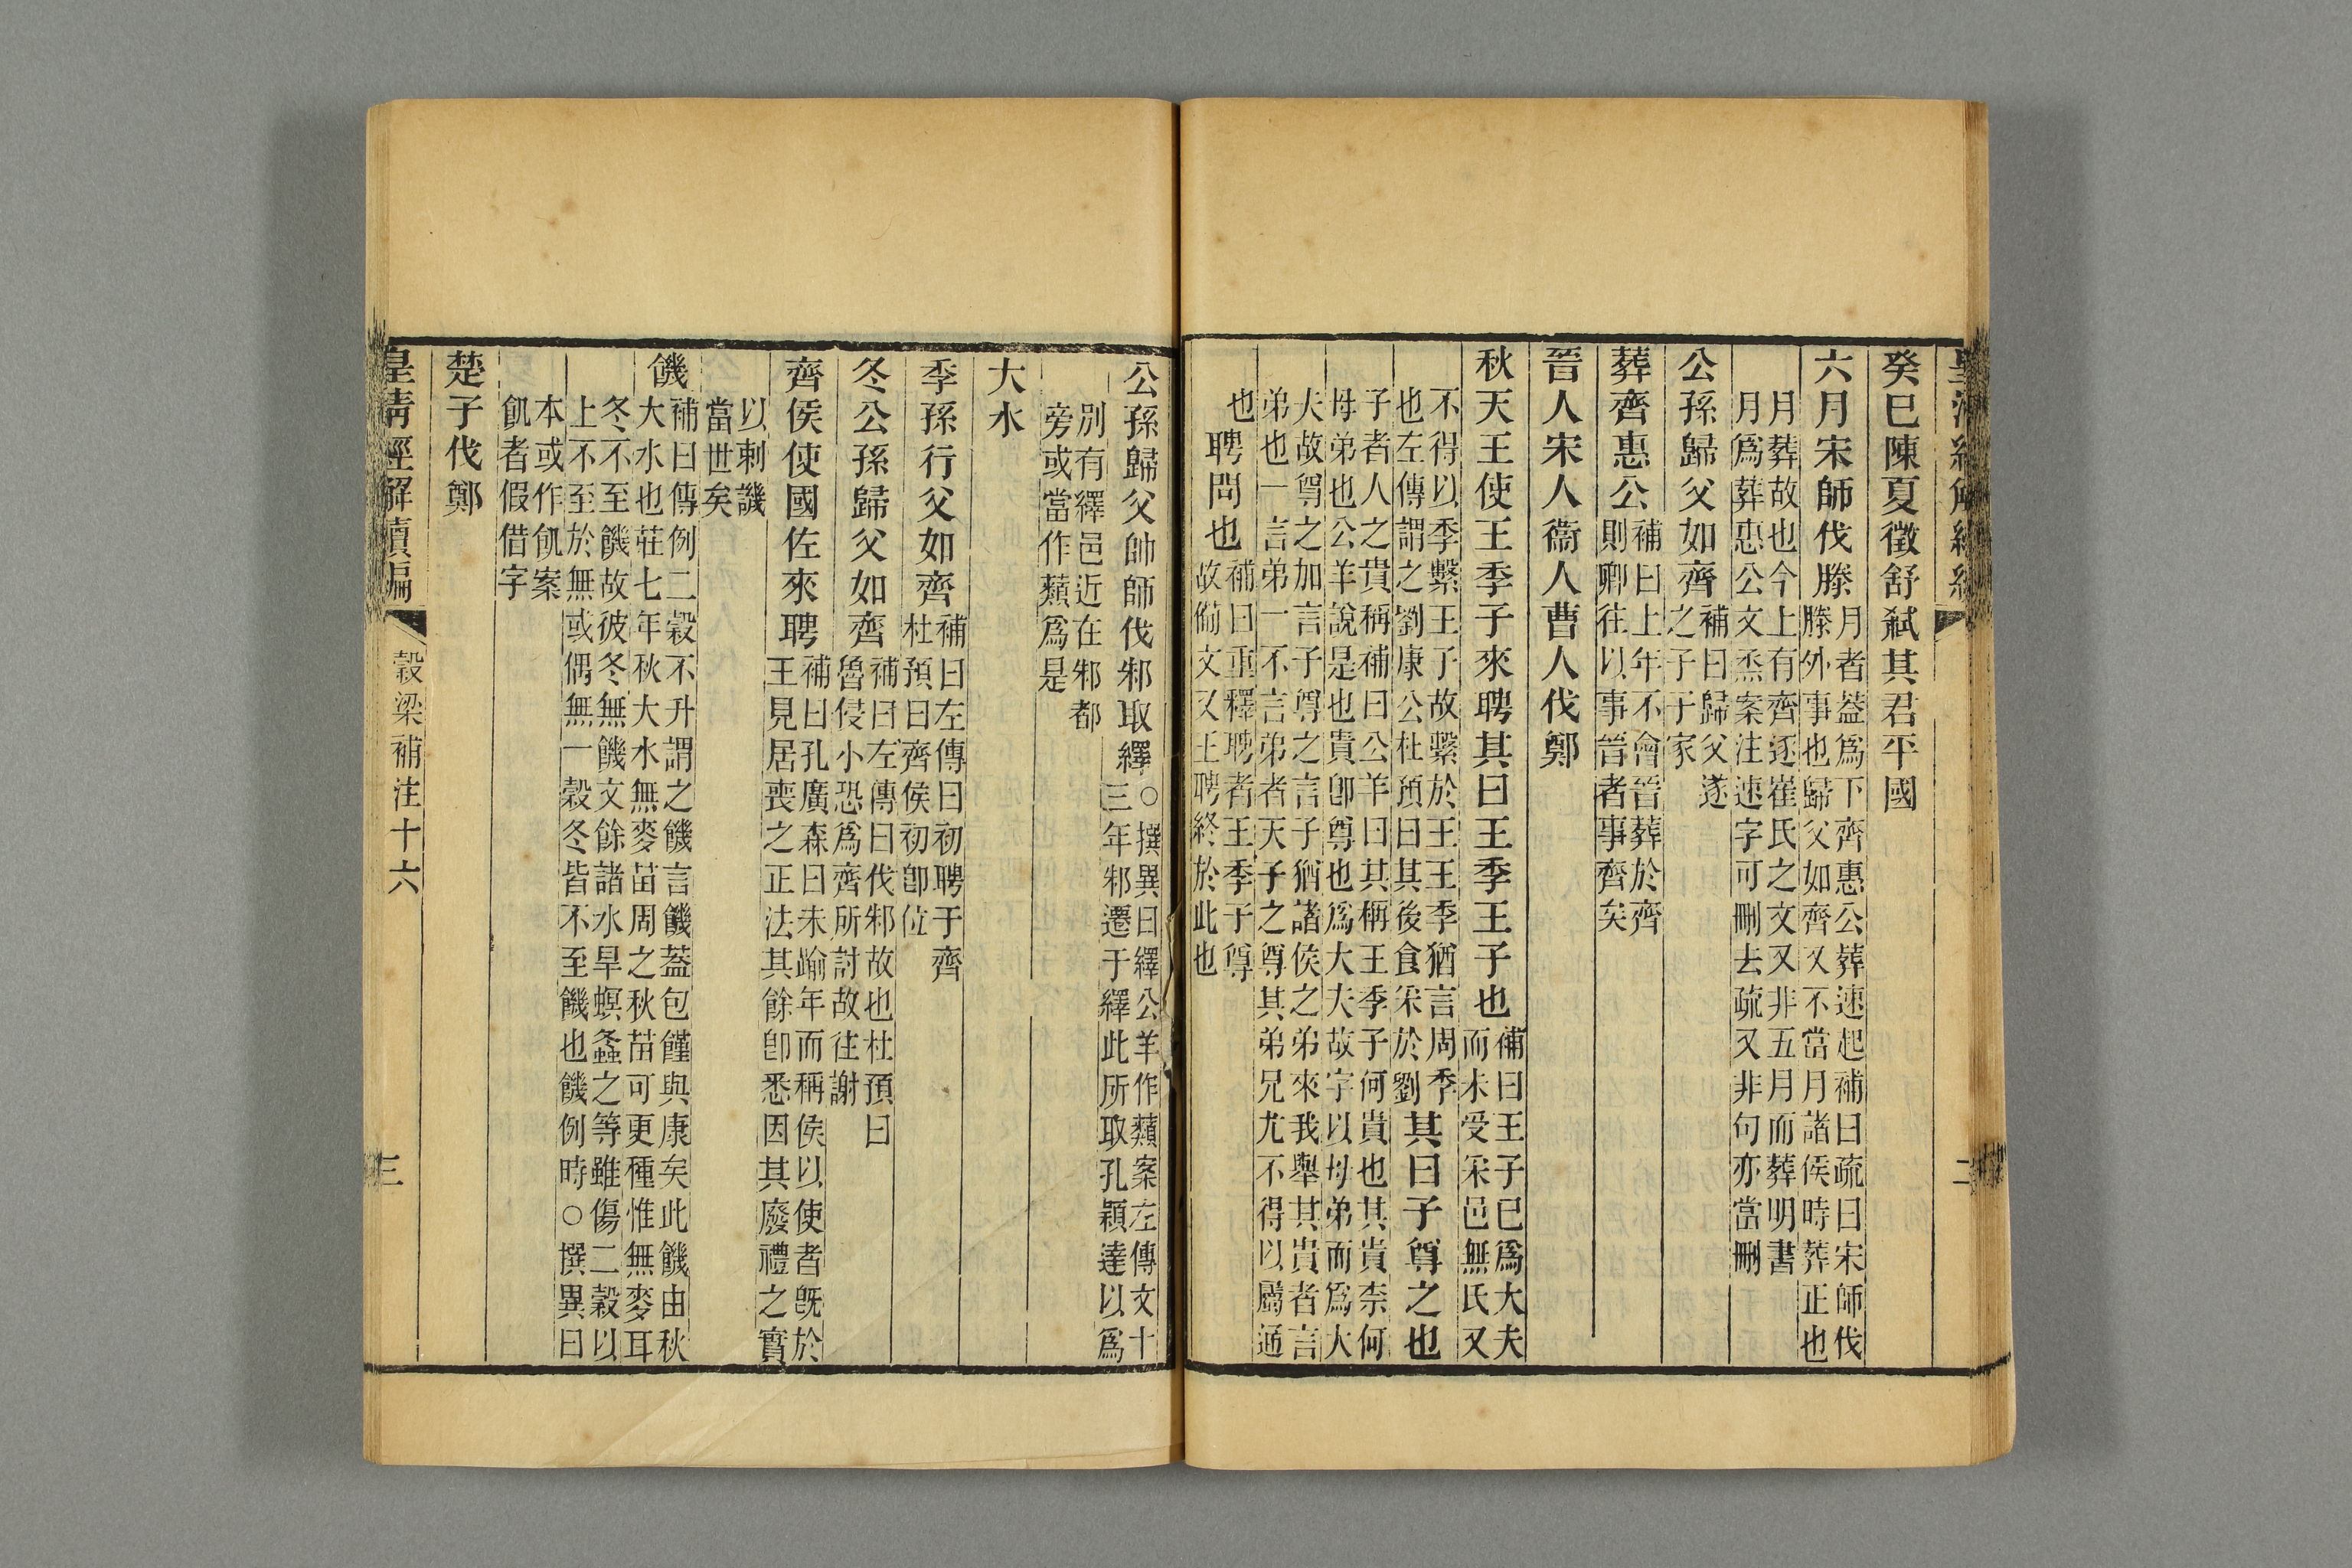 癸巳陳夏徵舒弒其君平國
六月宋師伐滕
月者葢爲下齊惠公葬速起補曰疏曰宋師伐
滕外事也歸父如齊又不當月諸侯時葬正也
月葬故也今上有齊逐崔氏之文又非五月而葬明書
月爲葬惠公文烝案注速字可刪去疏又非句亦當刪
公孫歸父如齊
補曰歸父遂
之子于家
葬齊惠公
補曰上年不會晉葬於齊
則卿往以事晉者事齊矣
晉人宋人衞人曹人伐鄭
秋天王使王季子來聘其曰王季王子也
補曰王子已爲大夫
而未受采邑無氏又
不得以季繫王子故繫於王王季猶言周季
也左傳謂之劉康公杜預曰其後食采於劉
其曰子尊之也
子者人之貴稱補曰公羊曰其稱王季子何貴也其貴柰何
母弟也公羊說是也貴卽尊也爲大夫故字以母弟而爲大
夫故尊之加言子尊之言子猶諸侯之弟來我舉其貴者言
弟也一言弟一不言弟者天子之尊其弟兄尤不得以屬通
也
聘問也
補曰重釋聘者王季子尊
故備文又王聘終於此也
公孫歸父帥師伐邾取繹
○撰異曰繹公羊作蘱案左傳文十
三年邾遷于繹此所取孔穎達以爲
別有繹邑近在邾都
旁或當作蘱爲是
大水
季孫行父如齊
補曰左傳曰初聘于齊
杜預曰齊侯初卽位
冬公孫歸父如齊
補曰左傳曰伐邾故也杜預曰
魯侵小恐爲齊所討故往謝
齊侯使國佐來聘
補曰孔廣森曰未踰年而稱侯以使者旣於
王見居喪之正法其餘卽悉因其廢禮之實
以刺譏
當世矣
饑
補曰傳例二穀不升謂之饑言饑葢包饉與康矣此饑由秋
大水也莊七年秋大水無麥苗周之秋苗可更種惟無麥耳
冬不至饑故彼冬無饑文餘諸水旱螟螽之等雖傷二穀以
上不至於無或偶無一穀冬皆不至饑也饑例時○撰異曰
本或作飢案
飢者假借字
楚子伐鄭
皇清經解續編
穀梁補注十六
三
二